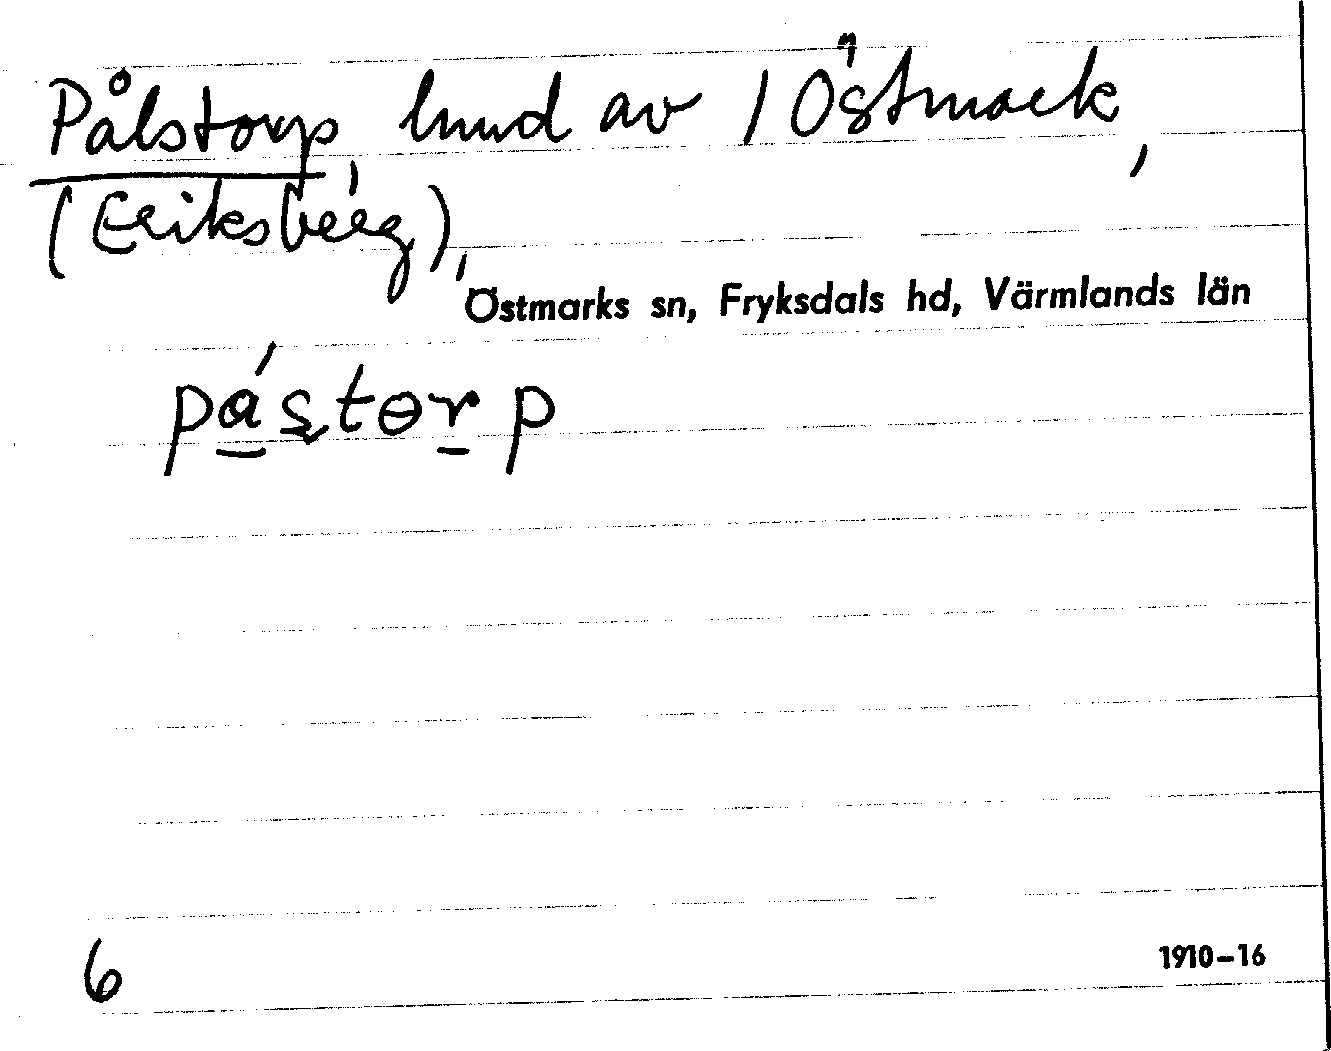 Pålstorp, hmd av 1 Östmark,
(Eriksberg),
Östmarks sn, Fryksdals hd, Värmlands län
pástɵrp
6
1910-16